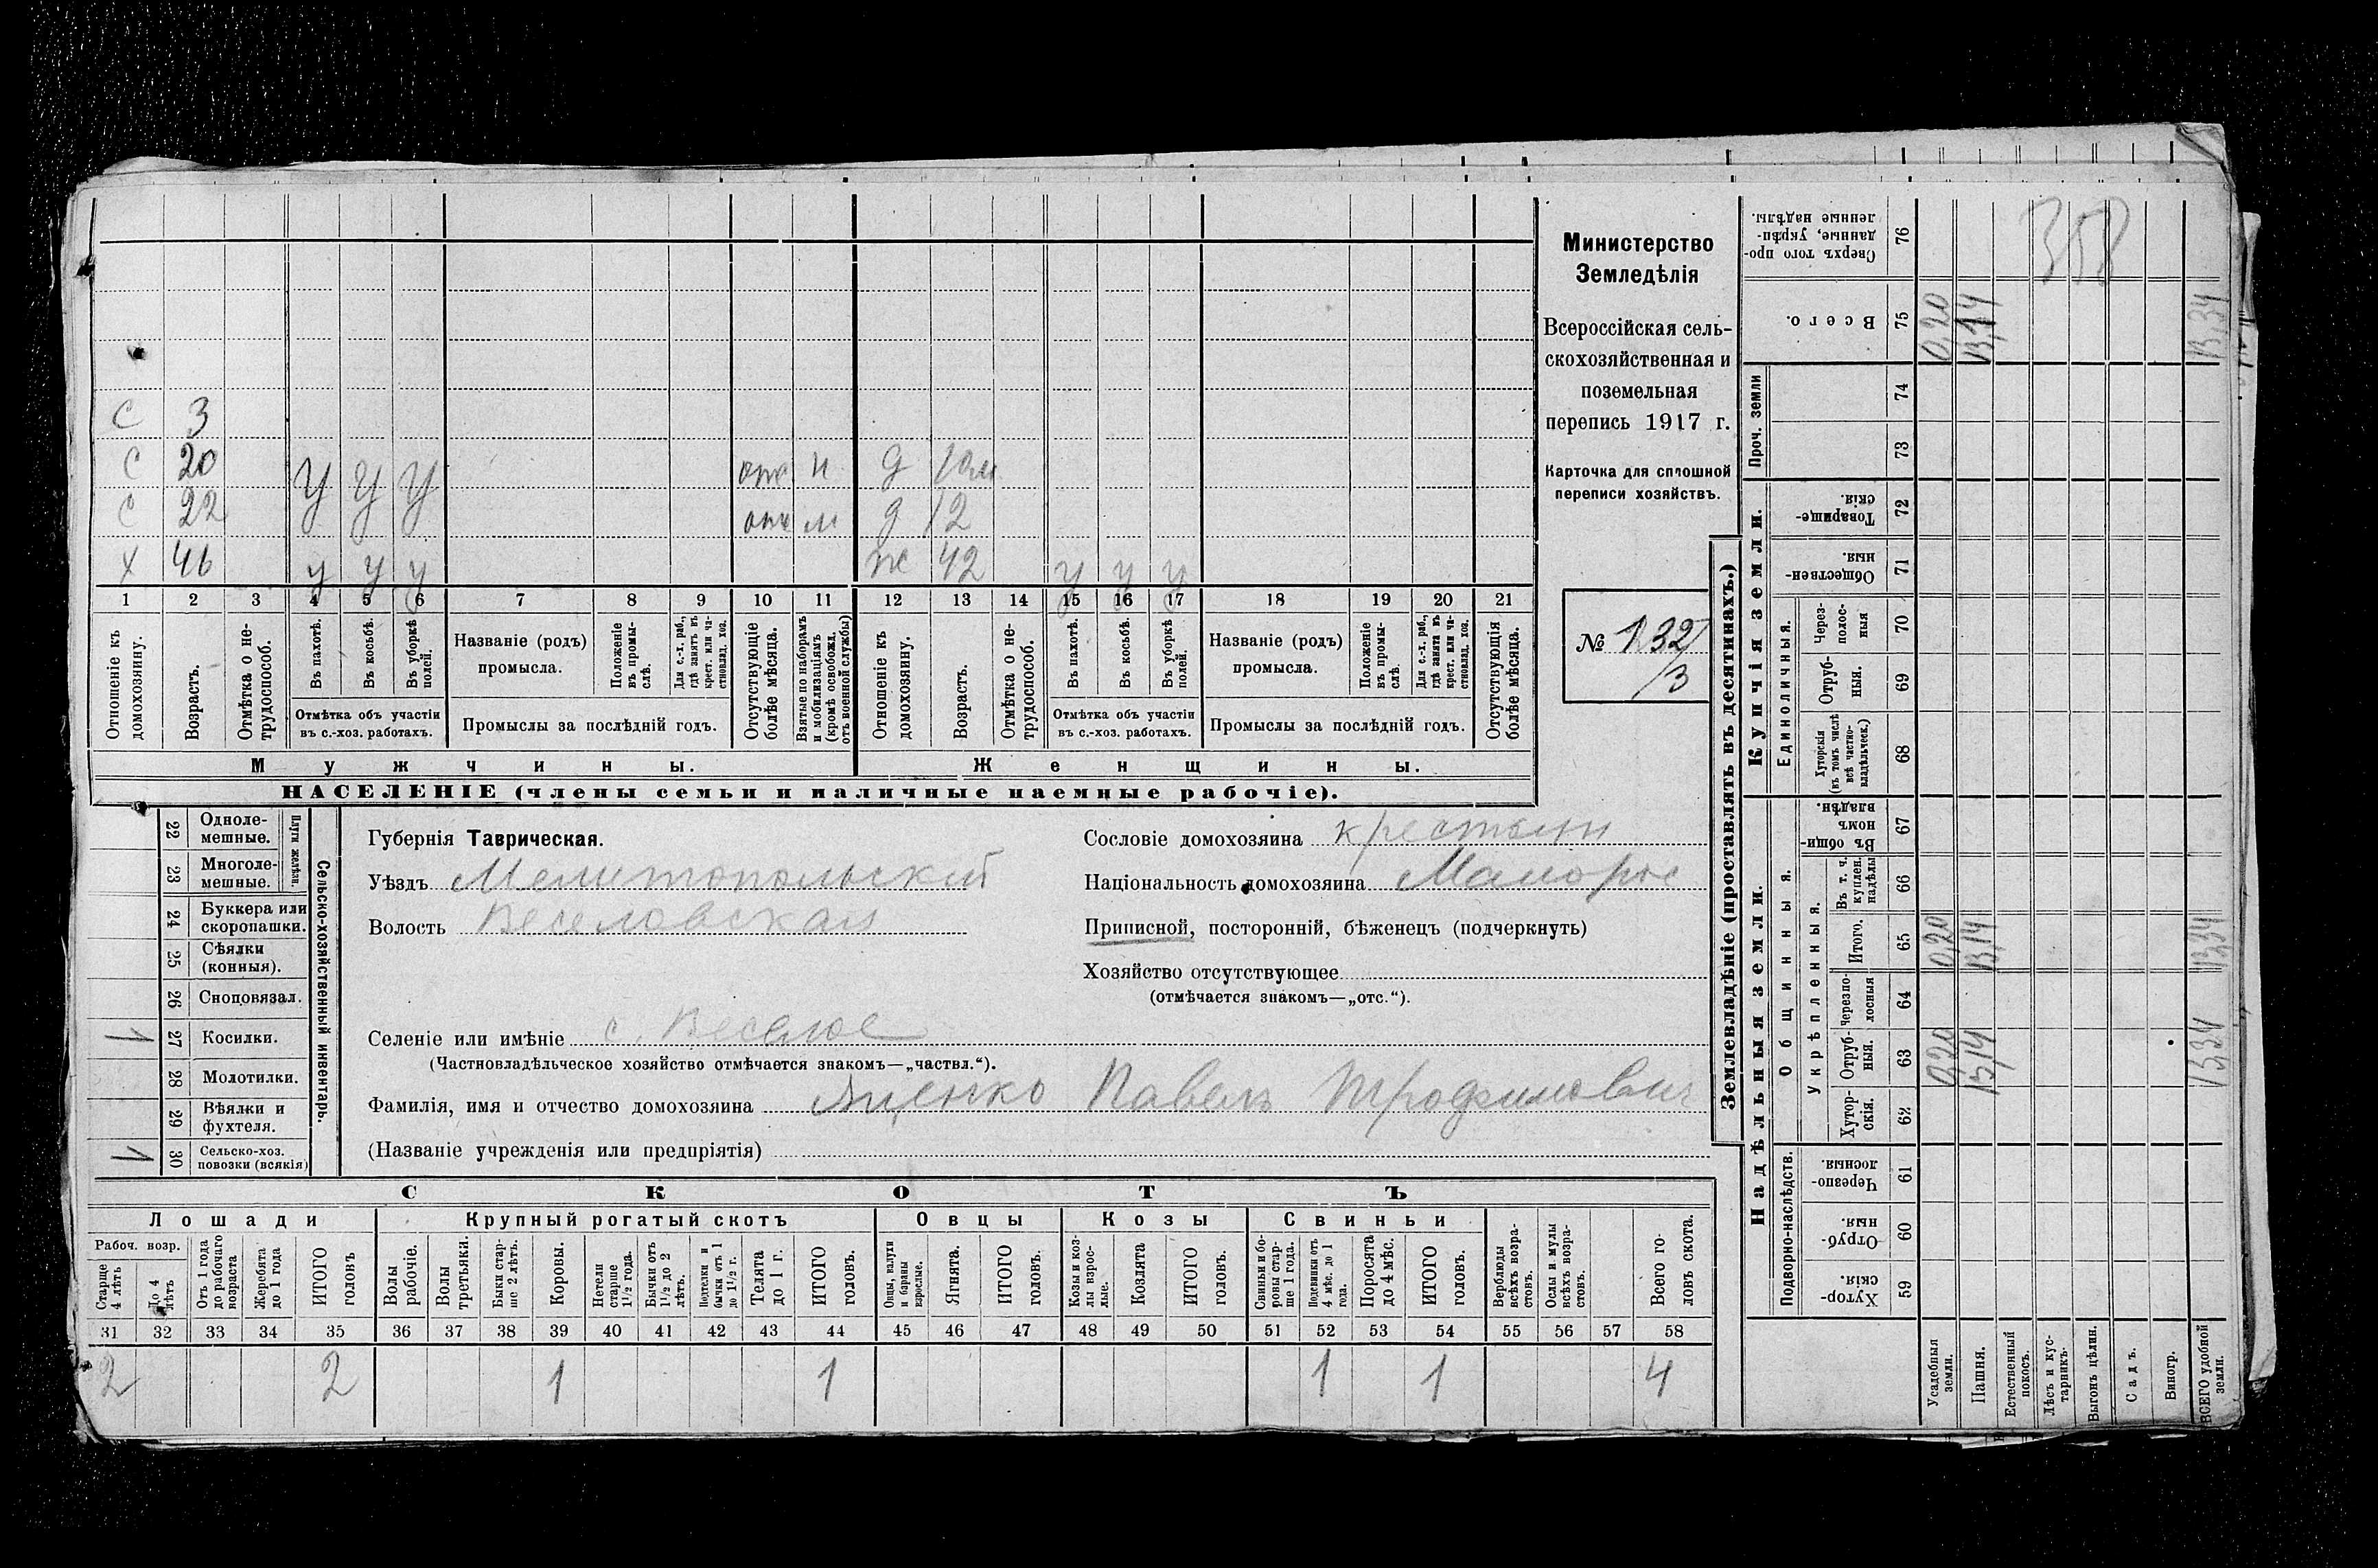 Министерство
Земледѣлія
Всероссійская сель-
скохозяйственная и
поземельная
перепись 1917 г.
Карточка для сплошной
переписи хозяйствъ.
№ 132/3
С 3
С 20 у у у отс Д
С 22 у у у отс м Д 12
Х 46 у у у ж 42 у у у
1 2 3 4 5 6 7 8 9 10 11 12 13 14 15 16 17 18 19 20 21
Отношеніе къ домохозяину.
Возрастъ.
Отмѣтка о не-трудоспособ.
Въ пахотѣ.
Въ косьбѣ.
Въ уборкѣ полей.
Отмѣтка объ участіи
въ с.-хоз. работахъ.
Названіе (родъ)
промысла.
Положеніе въ промы-слѣ.
Для с.-х. раб., гдѣ занятъ въ крест. или ча-стновлад. хоз.
Промыслы за послѣдній годъ.
Отсутствующіе болѣе мѣсяца.
Взятые по наборамъ и мобилизаціямъ (кромѣ освобожд. отъ военной службы)
Отношеніе къ домохозяину.
Возрастъ.
Отмѣтка о не-трудоспособ.
Въ пахотѣ.
Въ косьбѣ.
Въ уборкѣ полей.
Отмѣтка объ участіи
въ с.-хоз. работахъ.
Названіе (родъ)
промысла.
Положеніе въ промы-слѣ.
Для с.-х. раб., гдѣ занята въ крест. или ча-стновлад. хоз.
Промыслы за послѣдній годъ.
Отсутствующія болѣе мѣсяца.
Мужчины. Женщины.
НАСЕЛЕНІЕ (члены семьи и наличные наемные рабочіе).
Сельско-хозяйственный инвентарь.
Плуги желѣзн.
22 Одноле-мешные.
23 Многоле-мешные.
24 Буккера или скоропашки.
25 Сѣялки (конныя).
26 Сноповязал.
1 27 Косилки.
28 Молотилки.
29 Вѣялки и фухтеля.
1 30 Сельско-хоз. повозки (всякія)
Губернія Таврическая.
Уѣздъ Мелитопольскій
Волость Веселовская
Селеніе или имѣніе с. Веселое
(Частновладѣльческое хозяйство отмѣчается знакомъ—„частвл.“).
Фамилія, имя и отчество домохозяина Яценко Павелъ Трофимович
(Названіе учрежденія или предпріятія)
Сословіе домохозяина крестьян
Національность домохозяина Малорос
Приписной, посторонній, бѣженецъ (подчеркнуть)
Хозяйство отсутствующее
(отмѣчается знакомъ—„отс.“).
СКОТЪ
Лошади Крупный рогатый скотъ Овцы Козы Свиньи
Рабоч. возр.
Старше 4 лѣтъ
До 4 лѣтъ
Отъ 1 года до рабочаго возраста
Жеребята до 1 года
ИТОГО головъ
Волы рабочіе.
Волы третьяки.
Быки стар-ше 2 лѣтъ.
Коровы.
Нетели старше 1½ года.
Бычки отъ 1½ до 2 лѣтъ.
Подтелки и бычки отъ 1 до 1½ г.
Телята до 1 г.
ИТОГО головъ.
Овцы, валухи и бараны взрослые.
Ягнята.
ИТОГО головъ.
Козы и коз-лы взрос-лые.
Козлята
ИТОГО головъ.
Свиньи и бо-ровы стар-ше 1 года.
Подсвинки отъ 4 мѣс. до 1 года.
Поросята до 4 мѣс.
ИТОГО головъ.
Верблюды всѣхъ возра-стовъ.
Ослы и мулы всѣхъ возра-стовъ.
Всего го-ловъ скота.
31 32 33 34 35 36 37 38 39 40 41 42 43 44 45 46 47 48 49 50 51 52 53 54 55 56 57 58
2 2 1 1 1 1 4
Землевладѣніе (проставлять въ десятинахъ.)
Надѣльныя земли. Купчія земли.
Проч. земли
Подворно-наслѣдств.
Общинныя.
Укрѣпленныя.
Единоличныя.
Сверхъ того про-данные, укрѣп-ленные надѣлы. 76 358
Всего. 75 0,20 13,14 13,34
74
73
Товарище-скія. 72
Обществен-ныя. 71
Через-полос-ныя 70
Отруб-ныя. 69
Хуторскія (въ томъ числѣ всѣ частно-владѣльческ.) 68
Въ общин-номъ владѣн. 67
Въ т. ч. куплен. надѣлы 66
Итого. 65 0,20 13,14 13,34
Черезпо-лосныя 64
Отруб-ныя. 63 0,20 13,14 13,34
Хутор-скія. 62
Черезпо-лосныя. 61
Отруб-ныя. 60
Хутор-скія. 59
Усадебныя земли.
Пашня.
Естественный покосъ.
Лѣсъ и кус-тарникъ.
Выгонъ цѣлин.
Садъ.
Виногр.
ВСЕГО удобной земли.